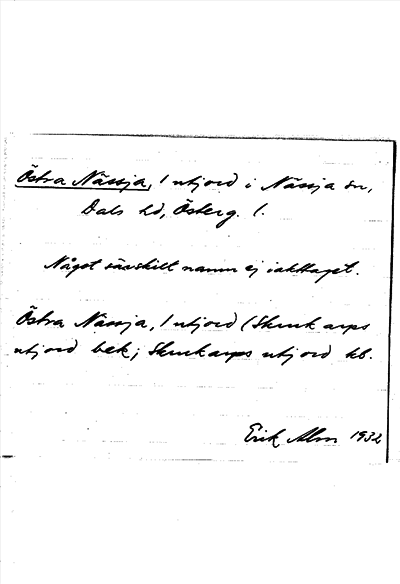 Östra Nässja, 1 utjord i Nässja sn,
Dals hd, Österg. l.
Något särskilt namn ej iakttaget.
Östra Nässja, 1 utjord (Skruk arps
utjord bek; Skrukarps utjord kb.
Erik Alm 1932